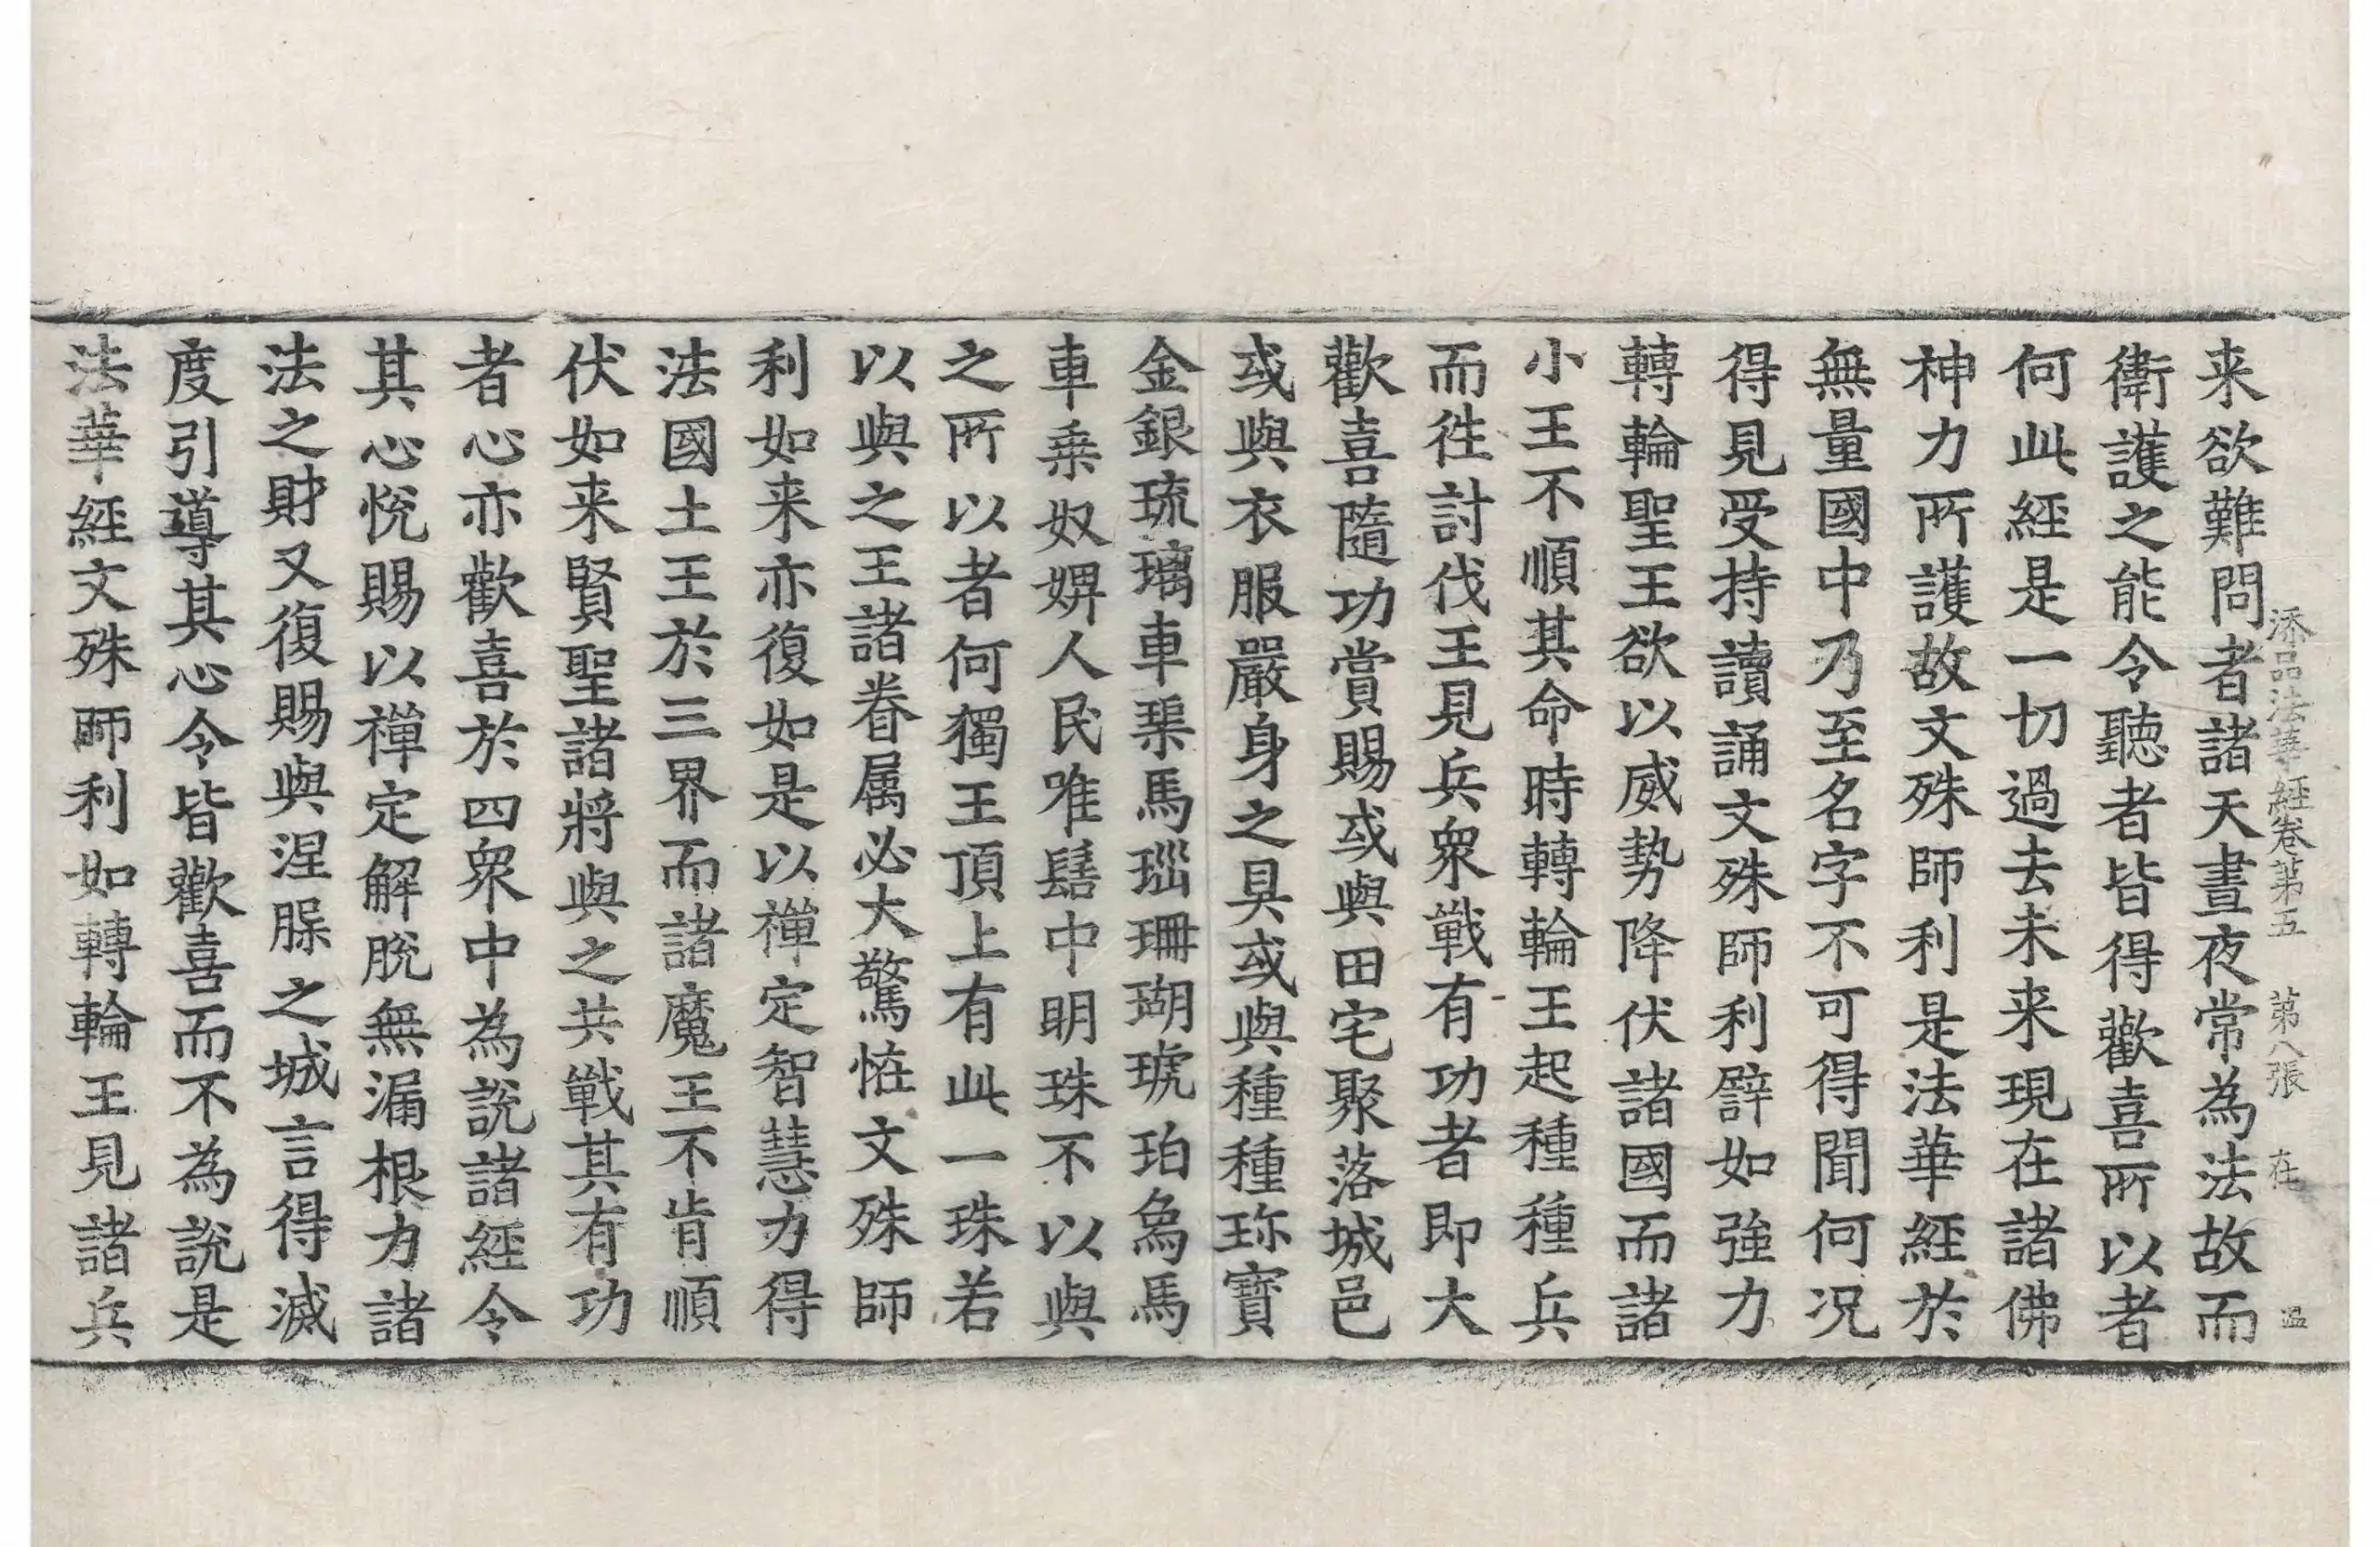 添品法華經卷第五 第八張 在 温
来欲難問者諸天晝夜常為法故而
衛護之能令聽者皆得歡喜所以者
何此經是一切過去未来現在諸佛
神力所護故文殊師利是法華經於
無量國中乃至名字不可得聞何况
得見受持讀誦文殊師利譬如強力
轉輪聖王欲以威勢降伏諸國而諸
小王不順其命時轉輪王起種種兵
而往討伐王見兵衆戰有功者即大
歡喜隨功賞賜或與田宅聚落城邑
或與衣服嚴身之具或與種種珎寶
金銀琉璃車璖馬瑙珊瑚琥珀象馬
車乗奴婢人民唯髻中明珠不以與
之所以者何獨王頂上有此一珠若
以與之王諸眷属必大驚恠文殊師
利如来亦復如是以禪定智慧力得
法國土王於三界而諸魔王不肯順
伏如来賢聖諸將與之共戰其有功
者心亦歡喜於四衆中為説諸經令
其心悅賜以禪定解脫無漏根力諸
法之財又復賜與涅槃之城言得滅
度引導其心令皆歡喜而不為説是
法華經文殊師利如轉輪王見諸兵